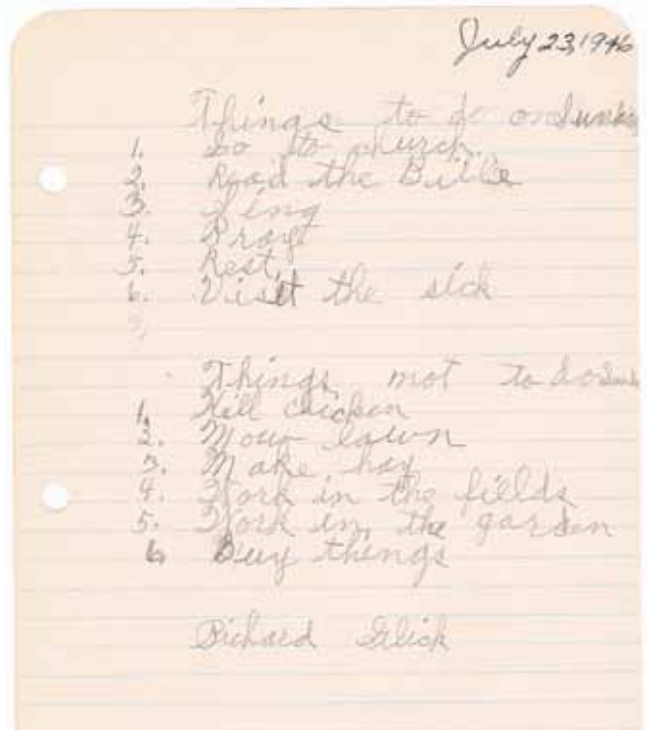 July 23, 1946
Things to do on Sunday
1. Go to church.
2. Read the Bible
3. Sing
4. Pray
5. Rest
6. Visit the sick
7.
Things not to do Sun
1. Kill chicken
2. Mow lawn
3. Make hay
4. Work in the fields
5. Work in the garden
6 Buy things
Richard Glick